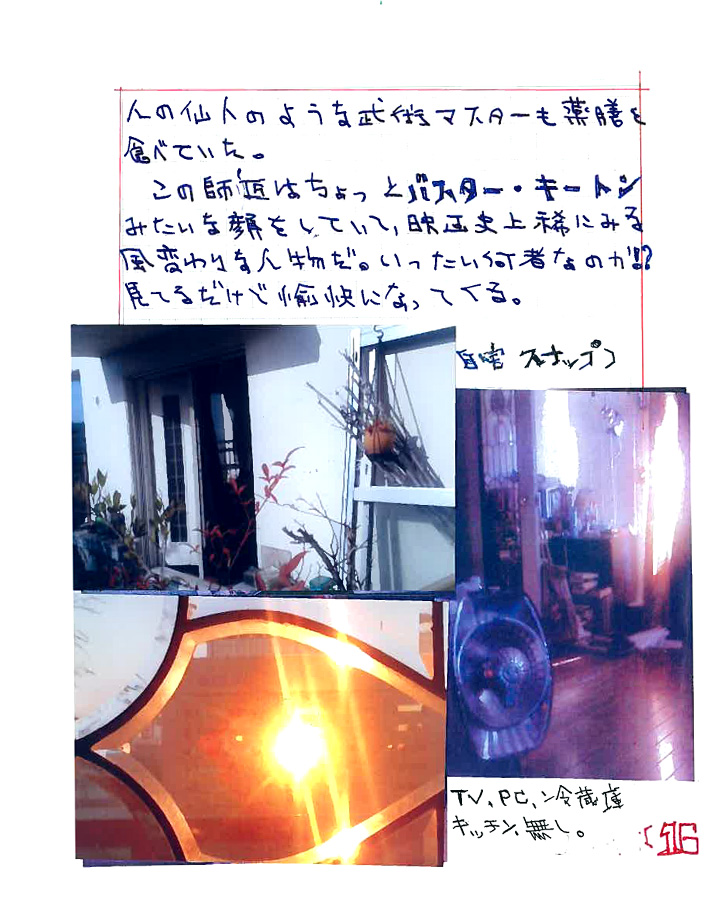 人の仙人のような武術マスターも薬膳を
食べていた。
この師匠はちょっとバスター・キートン
みたいな顔をしていて、映画史上稀にみる
風変わりな人物だ。いったい何者なのか!?
見てるだけで愉快になってくる。
自宅 スナップ
TV、PC、冷蔵庫
キッチン無し。
516